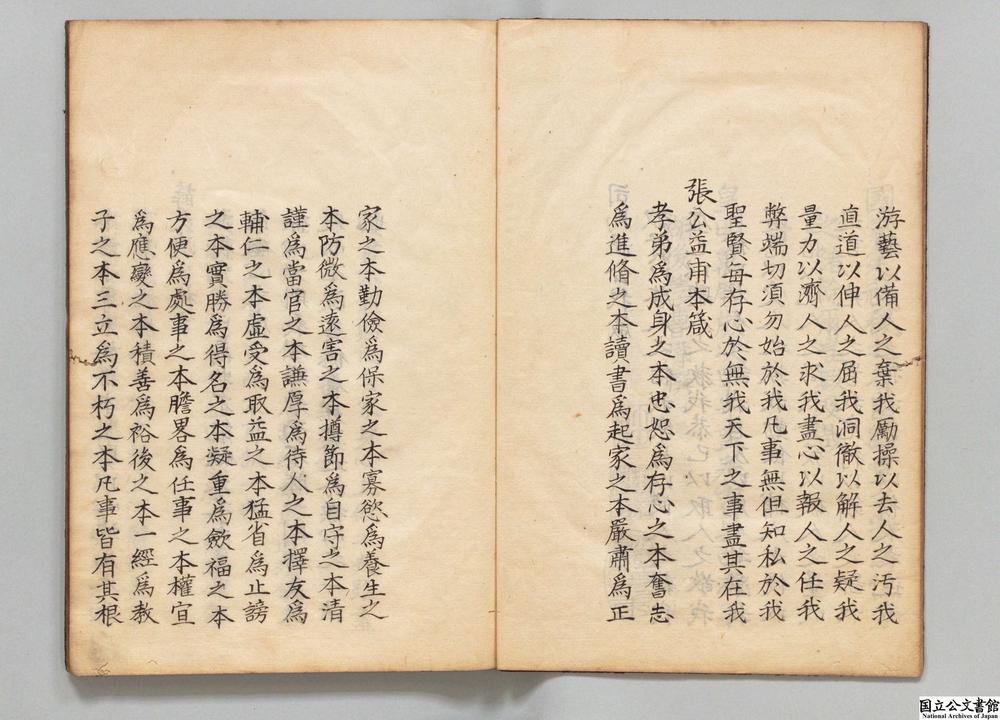 游藝以備人之棄我勵操以去人之汚我
直道以伸人之屈我洞徹以解人之疑我
量力以濟人之求我盡心以報人之任我
弊端切須勿始於我凡事無但知私於我
聖賢每存心於無我天下之事盡其在我
張公益甫本箴
孝弟爲成身之本忠恕爲存心之本奮志
爲進脩之本讀書爲起家之本嚴肅爲正
家之本勤儉爲保家之本寡慾爲養生之
本防微爲遠害之本撙節爲自守之本清
謹爲當官之本謙厚爲待人之本擇友爲
輔仁之本虛受爲取益之本猛省爲止謗
之本實勝爲得名之本凝重爲斂福之本
方便爲處事之本膽畧爲任事之本權宜
爲應變之本積善爲裕後之本一經爲教
子之本三立爲不朽之本凡事皆有其根
国立公文書館
National Archives of Japan